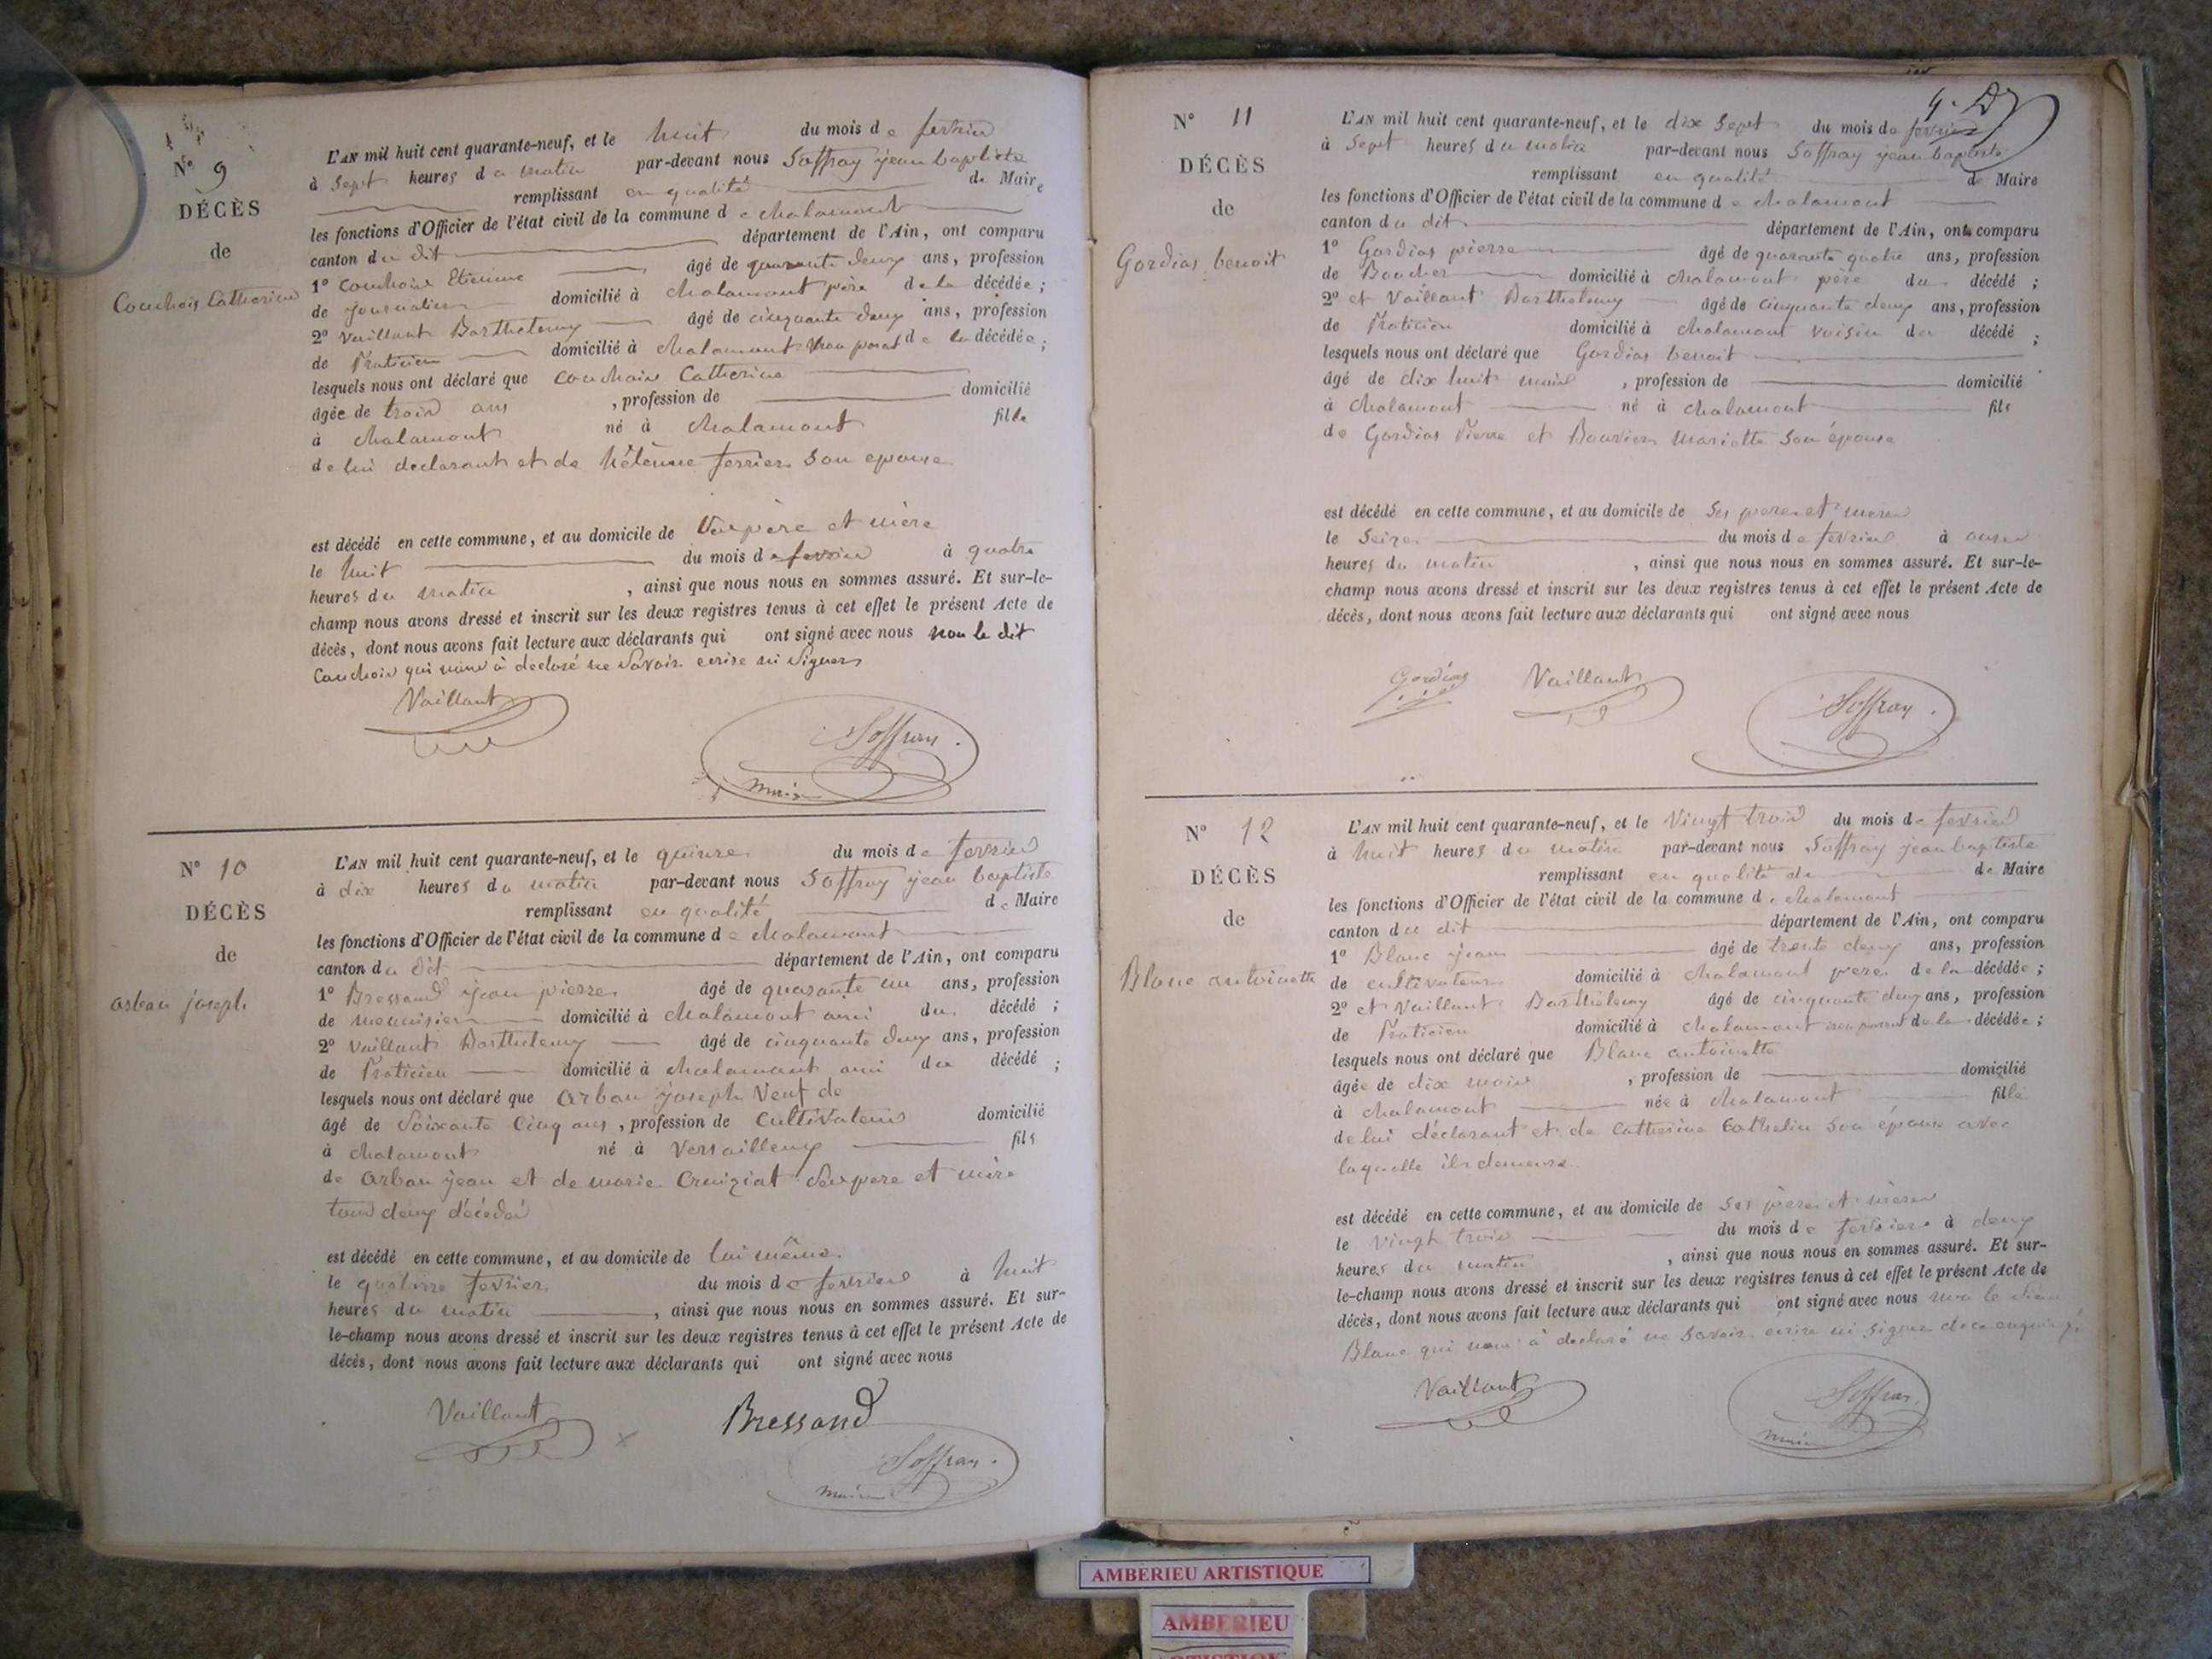 N° 9
DÉCÈS
de
Couchois Catherine
L'AN mil huit cent quarante-neuf, et le huit du mois de fevrier
à Sept heures du matin par-devant nous Soffray jean baptiste
remplissant en qualité de Maire
les fonctions d'Officier de l'état civil de la commune de chalamont
canton du dit département de l'Ain, ont comparu
1° Couchois Etienne âgé de quarante deux ans, profession
de journalier domicilié à chalamont père de la décédée ;
2° Vaillant Barthelemy âgé de cinquante deux ans, profession
de Praticien domicilié à chalamont non parent de la décédée ;
lesquels nous ont déclaré que couchois Catherine
âgée de trois ans , profession de domicilié
à chalamont né à chalamont fille
de lui declarant et de ferrier son epouse
est décédé en cette commune, et au domicile de père et mère
le huit du mois de fevrier à quatre
heures du matin , ainsi que nous nous en sommes assuré. Et sur-le-
champ nous avons dressé et inscrit sur les deux registres tenus à cet effet le présent Acte de
décès, dont nous avons fait lecture aux déclarants qui ont signé avec nous non le dit
Couchois qui à declaré ne Savoir ecrire ni Signer
Vaillant
Soffray
maire
N° 10
DÉCÈS
de
arban joseph
L'AN mil huit cent quarante-neuf, et le quinze du mois de fevrier
à dix heures du matin par-devant nous Soffray jean baptiste
remplissant en qualité de Maire
les fonctions d'Officier de l'état civil de la commune de chalamont
canton du dit département de l'Ain, ont comparu
1° Bressand jean pierre âgé de quarante un ans, profession
de menuisier domicilié à chalamont ami du décédé ;
2° Vaillant Barthelemy âgé de cinquante deux ans, profession
de Praticien domicilié à chalamont ami du décédé ;
lesquels nous ont déclaré que arban joseph Veuf de
âgé de Soixante Cinq ans , profession de Cultivateur domicilié
à chalamont né à Versailleux fils
de arban jean et de marie Cruiziat père et mère
tous deux décédés
est décédé en cette commune, et au domicile de lui même
le quatorze fevrier du mois de fevrier à huit
heures du matin , ainsi que nous nous en sommes assuré. Et sur-
le-champ nous avons dressé et inscrit sur les deux registres tenus à cet effet le présent Acte de
décès, dont nous avons fait lecture aux déclarants qui ont signé avec nous
Vaillant Bressand
Soffray
maire
N° 11
DÉCÈS
de
Gordias benoit
L'AN mil huit cent quarante-neuf, et le dix Sept du mois de fevrier
à Sept heures du matin par-devant nous Soffray jean baptiste
remplissant en qualité de Maire
les fonctions d'Officier de l'état civil de la commune de chalamont
canton du dit département de l'Ain, ont comparu
1° Gordias pierre âgé de quarante quatre ans, profession
de Boucher domicilié à chalamont père du décédé ;
2° et Vaillant Barthelemy âgé de cinquante deux ans, profession
de Praticien domicilié à chalamont voisin du décédé ;
lesquels nous ont déclaré que Gordias benoit
âgé de dix huit mois , profession de domicilié
à chalamont né à chalamont fils
de Gordias Pierre et Bouvier Mariette son épouse
est décédé en cette commune, et au domicile de Ses pere et mere
le Seize du mois de fevrier à onze
heures du matin , ainsi que nous nous en sommes assuré. Et sur-le-
champ nous avons dressé et inscrit sur les deux registres tenus à cet effet le présent Acte de
décès, dont nous avons fait lecture aux déclarants qui ont signé avec nous
Gordias Vaillant
Soffray
N° 12
DÉCÈS
de
Blanc antoinette
L'AN mil huit cent quarante-neuf, et le Vingt trois du mois de fevrier
à huit heures du matin par-devant nous Soffray jean baptiste
remplissant en qualité de de Maire
les fonctions d'Officier de l'état civil de la commune de chalamont
canton du dit département de l'Ain, ont comparu
1° Blanc jean âgé de trente deux ans, profession
de cultivateur domicilié à chalamont pere de la décédée ;
2° et Vaillant Barthelemy âgé de cinquante deux ans, profession
de Praticien domicilié à chalamont non parent de la décédée ;
lesquels nous ont déclaré que Blanc antoinette
âgée de dix mois , profession de domicilié
à chalamont née à chalamont fille
de lui déclarant et de Catherine Cathelin son épouse avec
laquelle il demeure
est décédé en cette commune, et au domicile de Ses père et mère
le Vingt trois du mois de fevrier à deux
heures du matin , ainsi que nous nous en sommes assuré. Et sur-
le-champ nous avons dressé et inscrit sur les deux registres tenus à cet effet le présent Acte de
décès, dont nous avons fait lecture aux déclarants qui ont signé avec nous non le
Blanc qui à declaré ne Savoir ecrire ni Signer de ce enquis
Vaillant
Soffray
maire
AMBERIEU ARTISTIQUE
AMBERIEU
ARTISTIQUE